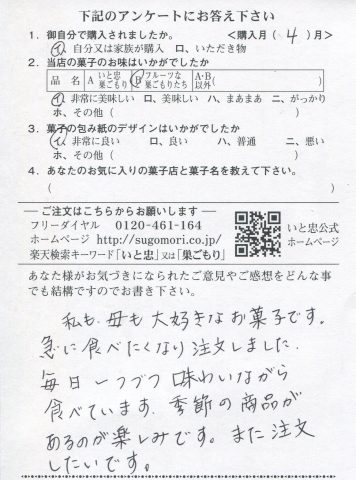 下記のアンケートにお答え下さい
1. 御自分で購入されましたか。 <購入月(4)月>
イ、自分又は家族が購入 ロ、いただき物
2. 当店の菓子のお味はいかがでしたか
品名 A いと忠巣ごもり B フルーツな巣ごもりたち A・B以外( )
イ、非常に美味しい ロ、美味しい ハ、まあまあ ニ、がっかり
ホ、その他( )
3. 菓子の包み紙のデザインはいかがでしたか
イ、非常に良い ロ、良い ハ、普通 ニ、悪い
ホ、その他( )
4. あなたのお気に入りの菓子店と菓子名を教えて下さい。
( )
ご注文はこちらからお願いします
フリーダイヤル 0120-461-164
ホームページ http://sugomori.co.jp/
楽天検索キーワード「いと忠」又は「巣ごもり」
いと忠公式
ホームページ
あなた様がお気づきになられたご意見やご感想をどんな事
でも結構ですのでお書き下さい。
私も母も大好きなお菓子です。
急に食べたくなり注文しました.
毎日一つづつ味わいながら
食べています. 季節の商品が
あるのが楽しみです。また注文
したいです。